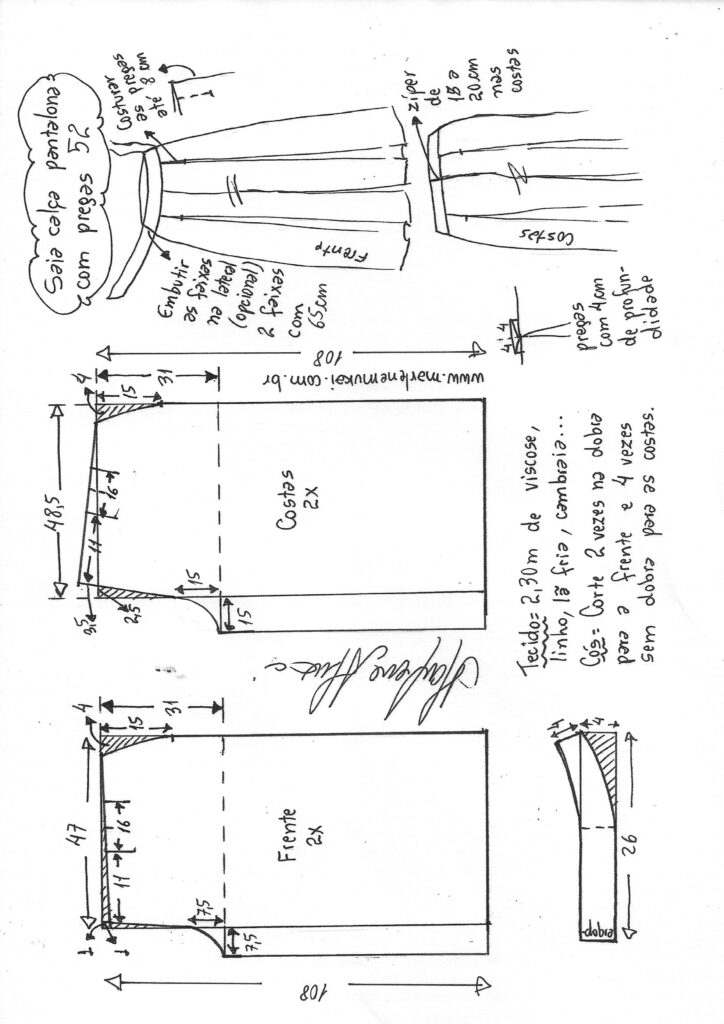 Saia calça pantalona
com pregas 52
Costurar
as pregas
até 8 cm
zíper
de
18 a
20cm
nas
costas
Frente
Costas
Embutir
as faixas
na lateral
(opcional)
2 faixas
com
65cm
4 4
pregas
com 4cm
de profun-
didade
108
31
4
15
48,5
16
11
3,5
2,5
15
15
Costas
2X
www.marlenemukai.com.br
Tecido= 2,30m de viscose,
linho, lã fria, cambraia...
Cós= Corte 2 vezes na dobra
para a frente e 4 vezes
sem dobra para as costas.
4
15
31
47
16
11
1
1
7,5
7,5
Frente
2X
108
4
4
26
dobra